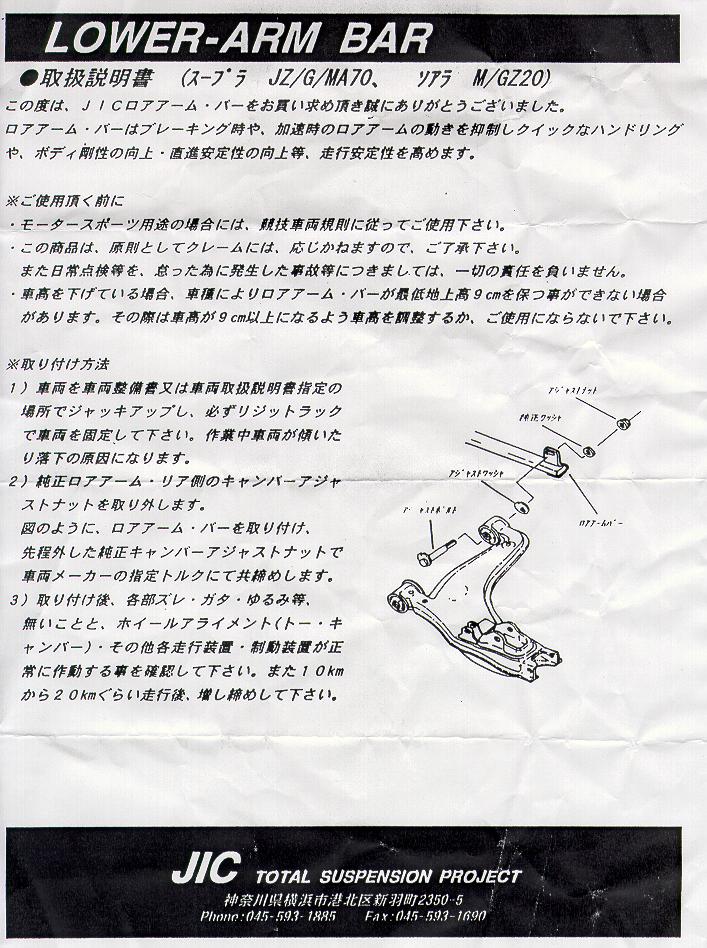 LOWER-ARM BAR
●取扱説明書 (ｽｰﾌﾟﾗ JZ/G/MA70、 ｿｱﾗ M/GZ20)
この度は、ＪＩＣロアアーム・バーをお買い求め頂き誠にありがとうございました。
ロアアーム・バーはブレーキング時や、加速時のロアアームの動きを抑制しクイックなハンドリング
や、ボディ剛性の向上・直進安定性の向上等、走行安定性を高めます。
※ご使用頂く前に
・モータースポーツ用途の場合には、競技車両規則に従ってご使用下さい。
・この商品は、原則としてクレームには、応じかねますので、ご了承下さい。
また日常点検等を、怠った為に発生した事故等につきましては、一切の責任を負いません。
・車高を下げている場合、車種によりロアアーム・バーが最低地上高９cmを保つ事ができない場合
があります。その際は車高が９cm以上になるよう車高を調整するか、ご使用にならないで下さい。
※取り付け方法
１）車両を車両整備書又は車両取扱説明書指定の
場所でジャッキアップし、必ずリジットラック
で車両を固定して下さい。作業中車両が傾いた
り落下の原因になります。
２）純正ロアアーム・リア側のキャンバーアジャ
ストナットを取り外します。
図のように、ロアアーム・バーを取り付け、
先程外した純正キャンバーアジャストナットで
車両メーカーの指定トルクにて共締めします。
３）取り付け後、各部ズレ・ガタ・ゆるみ等、
無いことと、ホイールアライメント(トー・キ
ャンバー)・その他各走行装置・制動装置が正
常に作動する事を確認して下さい。また１０km
から２０kmぐらい走行後、増し締めして下さい。
ｱｼﾞｬｽﾄﾅｯﾄ
純正ﾜｯｼｬ
ｱｼﾞｬｽﾄﾜｯｼｬ
ｱｼﾞｬｽﾄﾎﾞﾙﾄ
ﾛｱｱｰﾑﾊﾞｰ
JIC TOTAL SUSPENSION PROJECT
神奈川県横浜市港北区新羽町2350-5
Phone:045-593-1885 Fax:045-593-1690